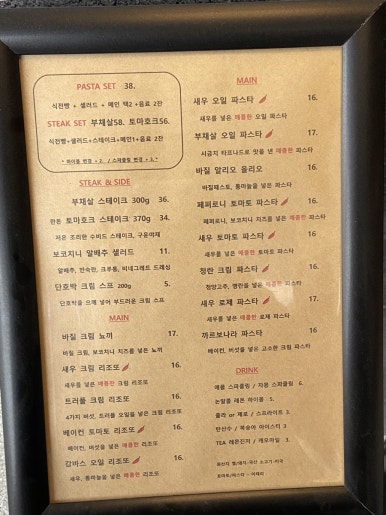 PASTA SET 38.
식전빵 + 샐러드 + 메인 택2 +음료 2잔
STEAK SET 부채살58. 토마호크56.
식전빵+샐러드+스테이크+메인1+음료 2잔
STEAK & SIDE
부채살 스테이크 300g 36.
토마호크 스테이크 370g 34.
저온 조리한 수비드 스테이크, 구운야채
보코치니 알배추 샐러드 11.
알배추, 반숙란, 크루통, 비네그레트 드레싱
단호박 크림 스프 200g 5.
단호박을 으깨 넣어 부드러운 크림 스프
MAIN
바질 크림 뇨끼 17.
바질 크림, 보코치니 치즈를 넣은 뇨끼
새우 크림 리조또 16.
새우를 넣은 매콤한 크림 리조또
트러플 크림 리조또 16.
4가지 버섯, 트러플 오일을 넣은 크림 리조또
베이컨 토마토 리조또 16.
베이컨, 버섯을 넣은 매콤한 리조또
감바스 오일 리조또 16.
새우, 통마늘을 넣은 매콤한 리조또
MAIN
새우 오일 파스타 16.
새우를 넣은 매콤한 오일 파스타
부채살 오일 파스타 17.
타프나드로 맛을 낸 매콤한 파스타
바질 알리오 올리오 16.
바질페스토, 통마늘을 넣은 파스타
페퍼로니 토마토 파스타 16.
페퍼로니, 보코치니 치즈를 넣은 매콤한 파스타
새우 토마토 파스타 16.
새우를 넣은 매콤한 토마토 파스타
청란 크림 파스타 16.
청양고추, 명란을 넣은 매콤한 파스타
새우 로제 파스타 17.
새우를 넣은 매콤한 로제 파스타
까르보나라 파스타 16
베이컨, 버섯을 넣은 고소한 크림 파스타
DRINK
애플 스파클링 / 자몽 스파클링 6.
논알콜 레몬 하이볼 5.
콜라 or 제로 / 스프라이트 3.
탄산수 / 복숭아 아이스티 3
TEA 레몬진저 / 캐모마일 3.